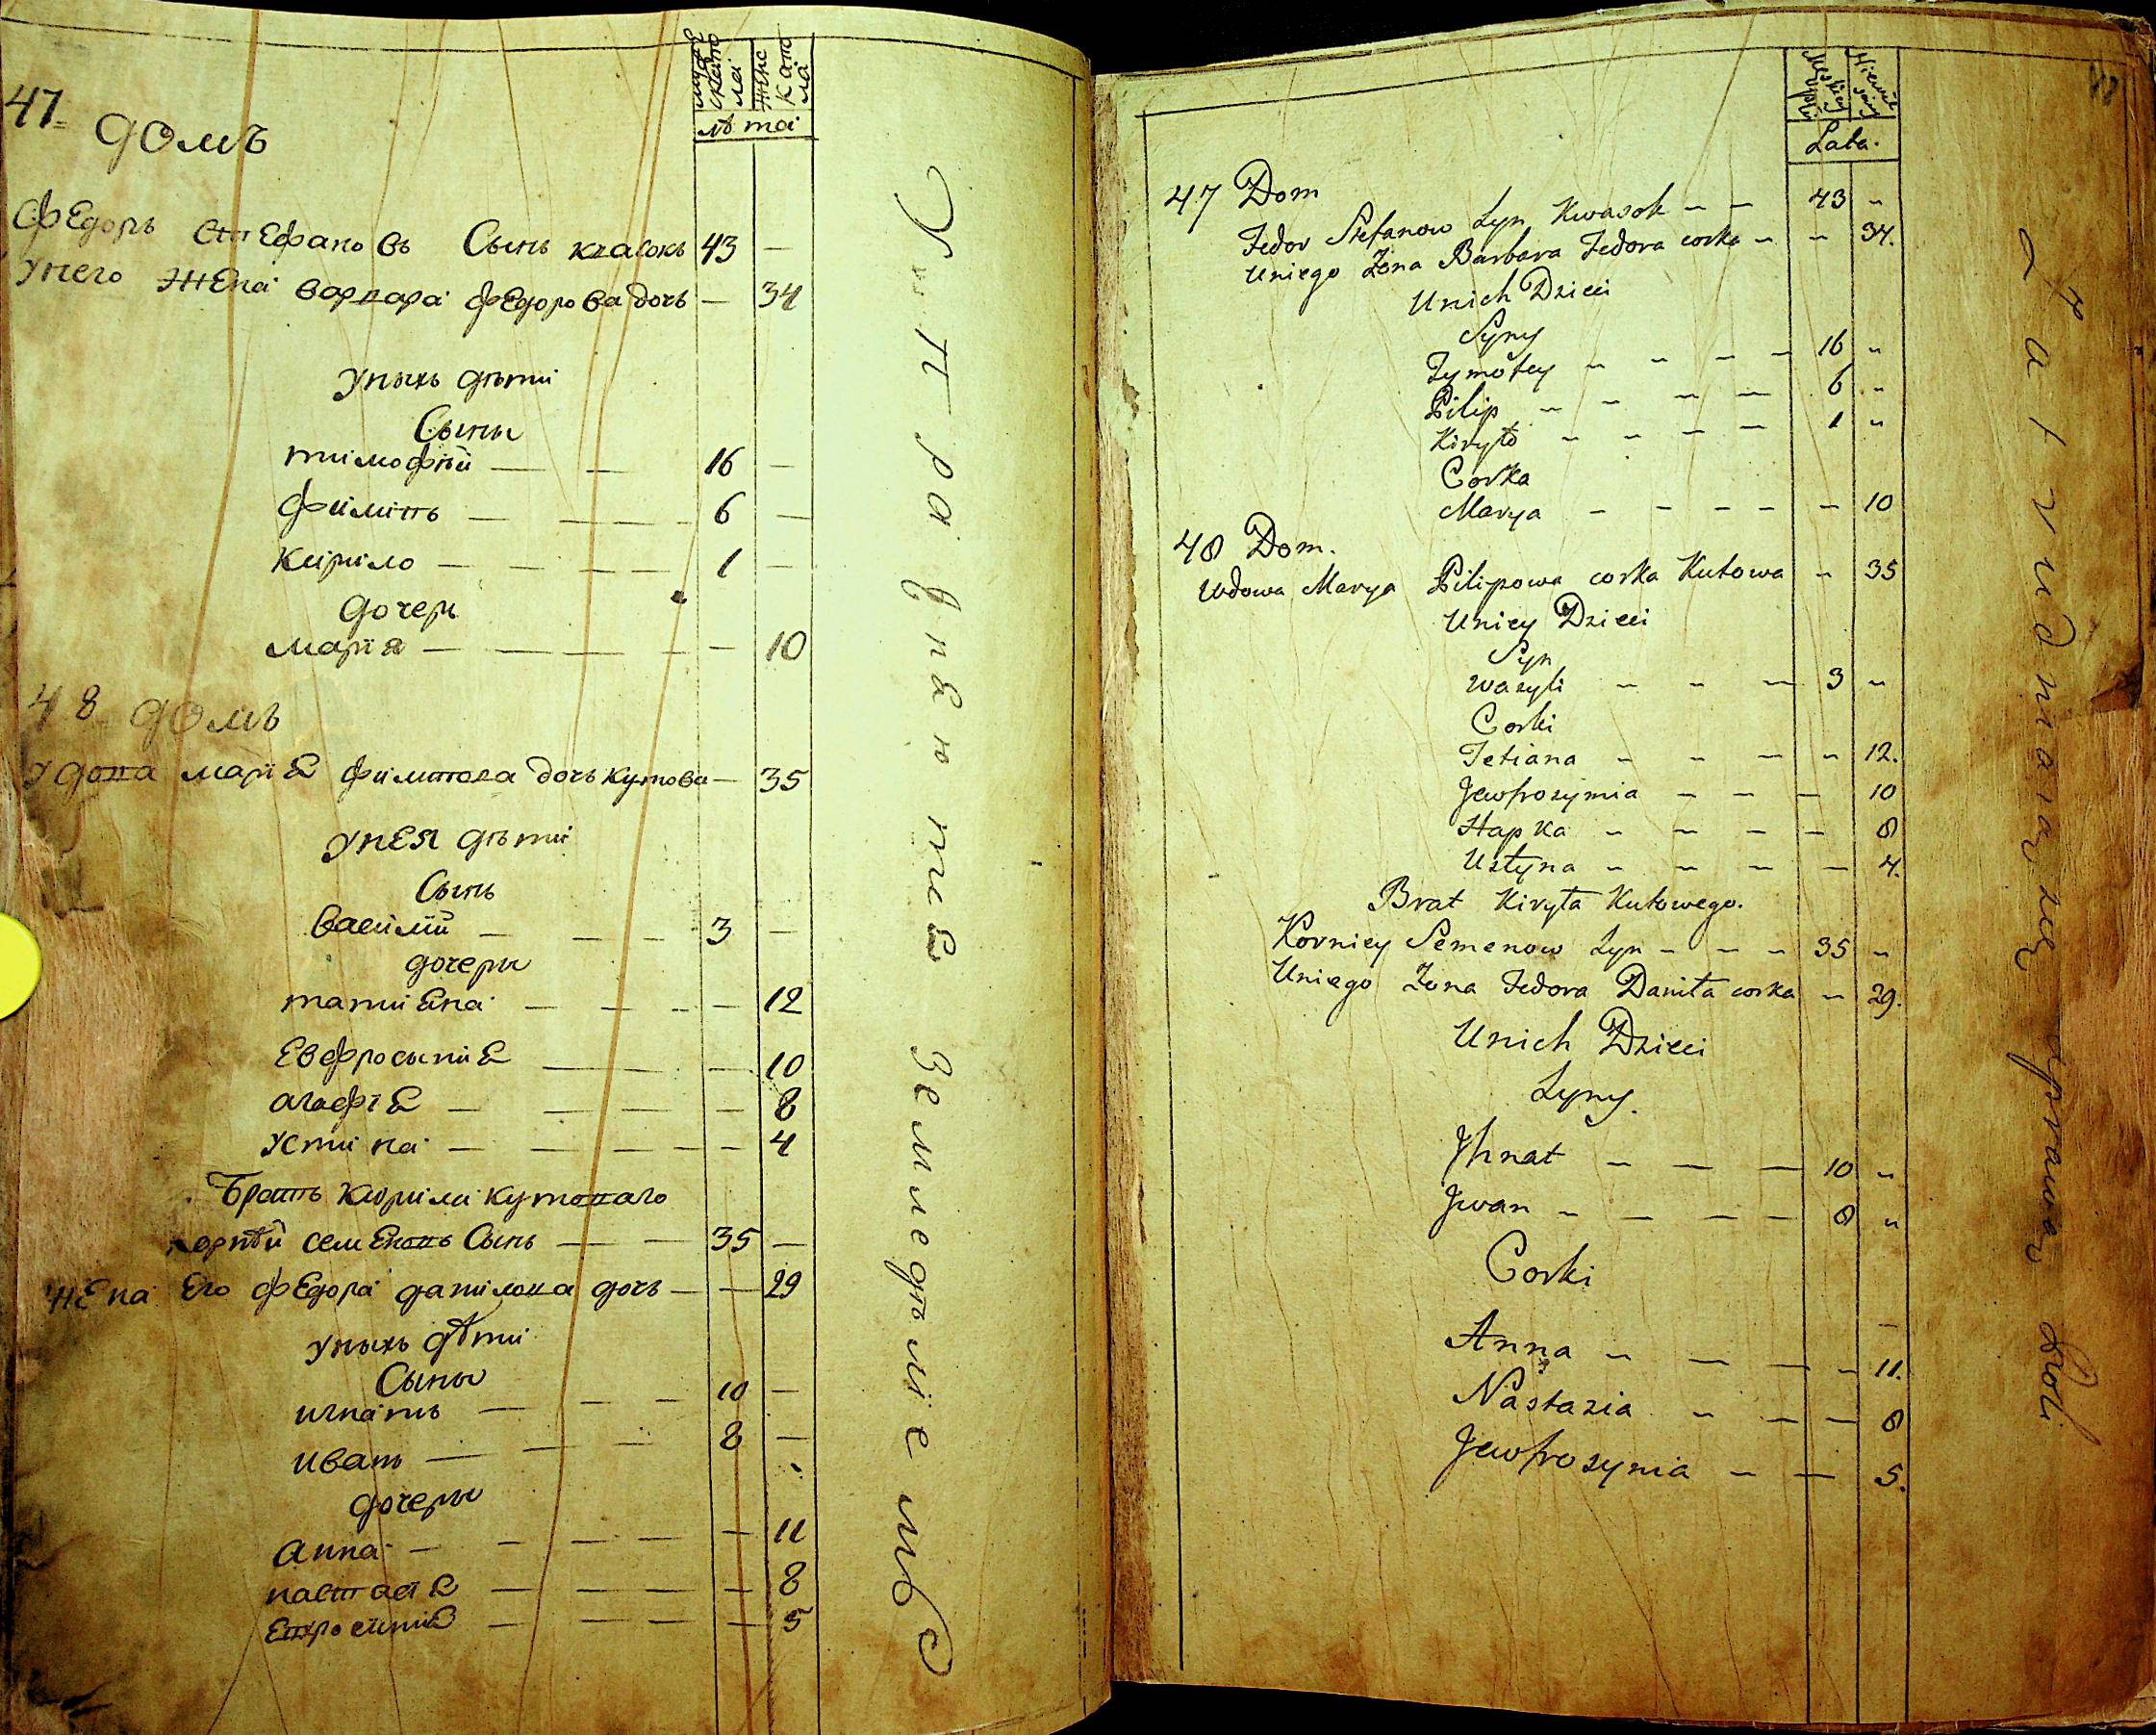 мужеска пола
женска пола
лѣта
47 домъ
Федоръ Стефановъ Сынъ квасокъ 43 —
Унего Жена варвара федорова дочь — 34
Уныхъ дѣти
Сыны
тимофѣй — — 16 —
филипъ — — 6 —
кирило — — — — 1 —
дочери
мария — — — — — 10
48 домъ
Удова мария филипова дочь кутова — 35
Унея дѣти
Сынъ
василий — — — 3 —
дочеры
татиена — — — — 12
Евфросыния — — 10
агафия — — — — 8
устина — — — — — 4
Братъ кирила кутоваго
корнѣй семеновъ Сынъ — — 35 —
жена Его федора данилова дочь — — 29
уныхъ дѣти
Сыны
игнатъ — — — 10 —
иванъ — — — 8 —
дочеры
анна — — — — — 11
настасия — — — — 8
Евросиния — — — — 5
Упражняется земледѣліемъ
Lata.
47 Dom
Fedor Stefanow Syn Kwasok — — 43 "
Uniego Żona Barbara Fedora corka — " 34.
Unich Dzieci
Syny
Tymofey — — — — 16 "
Pilip — — — — 6 "
Kiryło — — — — 1 "
Corka
Marya — — — — — 10
48 Dom.
Wdowa Marya Pilipowa corka Kutowa " 35
Uniey Dzieci
Syn
wasyli — — — 3 "
Corki
Tetiana — — — " 12.
Jewfrozynia — — — 10
Hapka — — — — 8
Ustyna — — — — 4.
Brat Kiryła Kutowego.
Korniey Semenow Syn — — — 35 "
Uniego Żona Fedora Daniła corka " 29.
Unich Dzieci
Syny.
Jhnat — — — 10 "
Jwan — — — — 8 "
Corki
Anna — — — — 11.
Nastazia — — — 8
Jewfrozynia — — 5.
Zatrudniaią się uprawą Roli